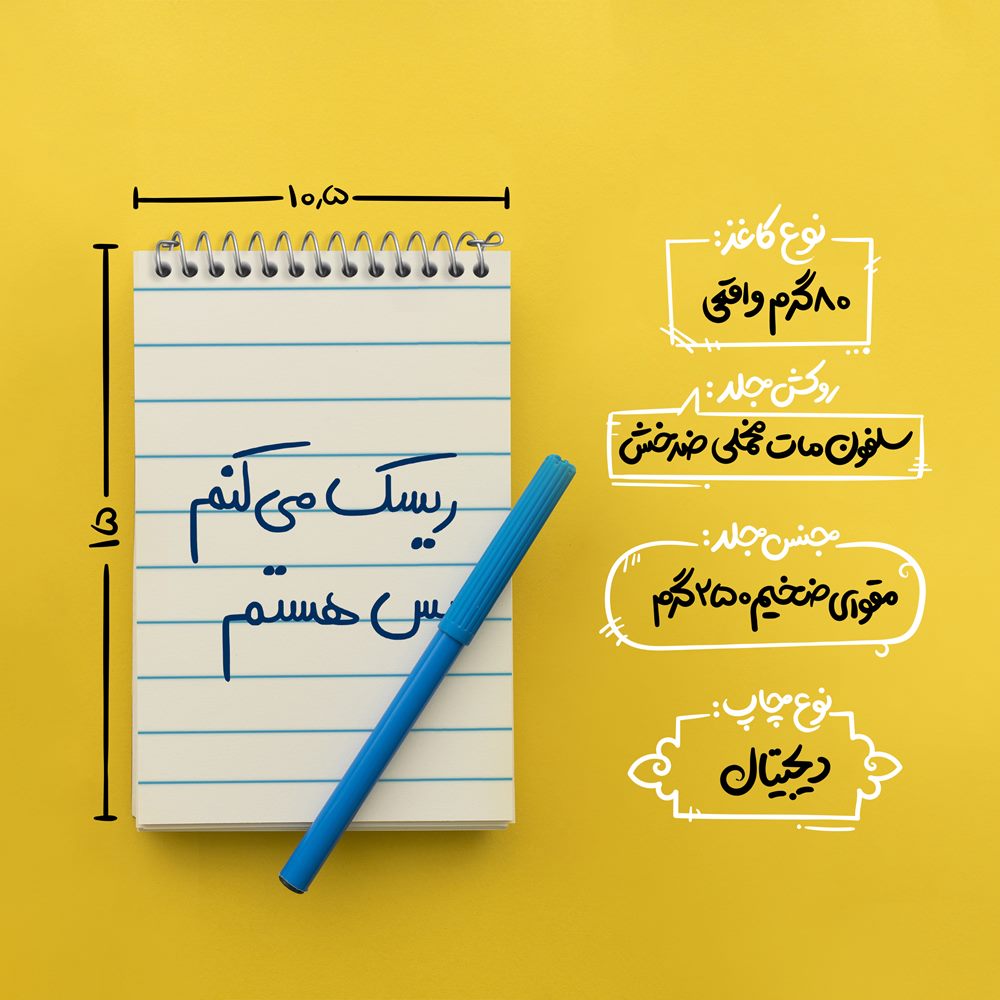 ۱۰٫۵
۱۵
ریسک می‌کنم
پس هستیم
نوع کاغذ:
۸۰گرم واقعی
روکش جلد:
سلفون مات مخملی ضدخش
جنس جلد:
مقوای ضخیم ۲۵۰گرم
نوع چاپ:
دیجیتال